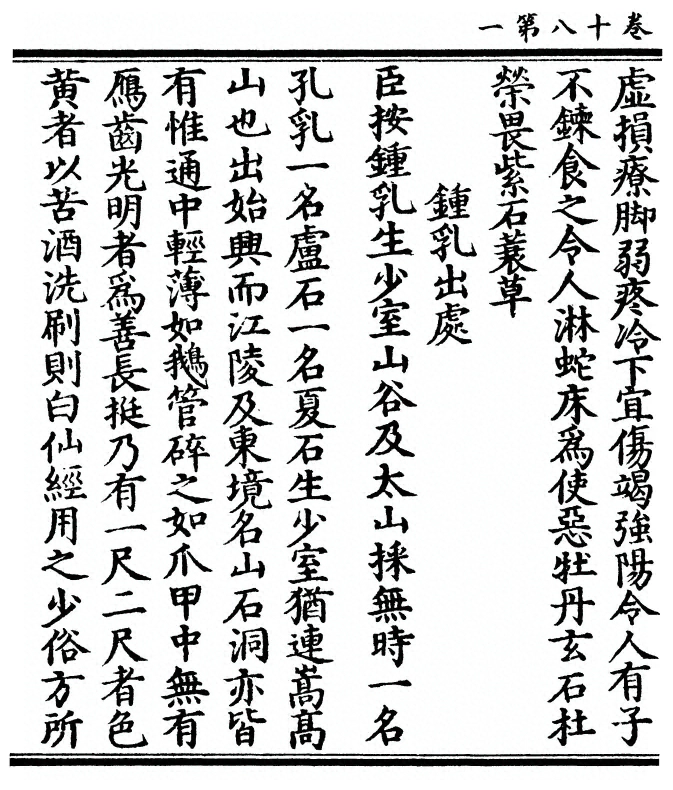 卷十八第一
虛損療脚弱疼冷下宜傷竭強陽令人有子
不鍊食之令人淋蛇床為使惡牡丹玄石杜
榮畏紫石蓑草
鍾乳出處
臣按鍾乳生少室山谷及太山採無時一名
孔乳一名盧石一名夏石生少室猶連嵩高
山也出始興而江陵及東境名山石洞亦皆
有惟通中輕薄如鵝管碎之如爪甲中無有
鴈齒光明者為善長挺乃有一尺二尺者色
黄者以苦酒洗刷則白仙經用之少俗方所